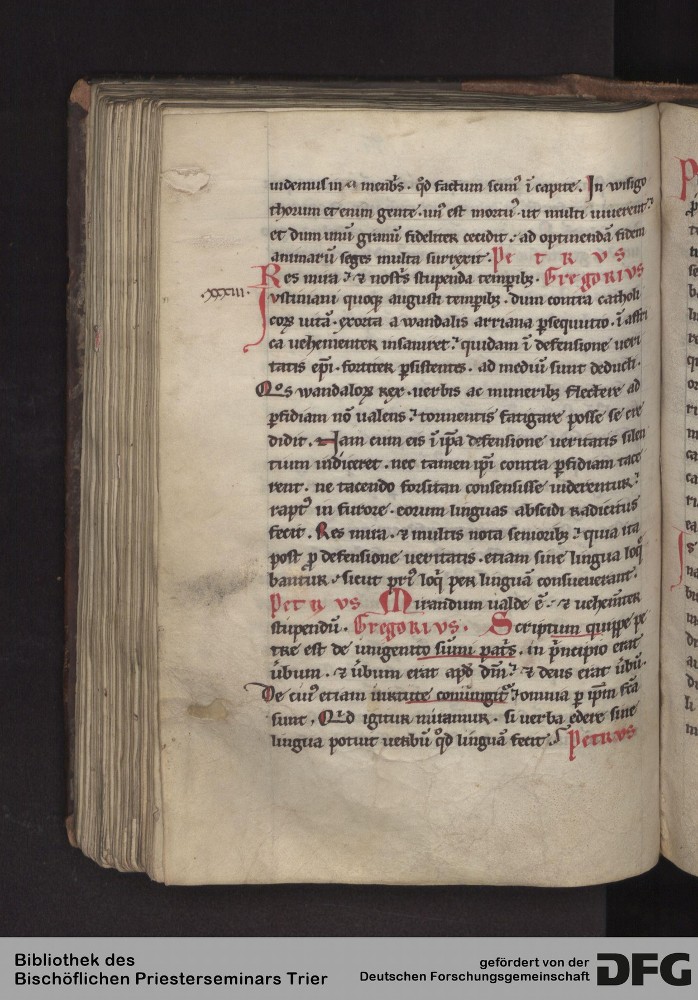 uidemus in a menbꝭ. qd̄ factum scim᷒ ī capite. In wisigo
thorum et enim gente. un᷒ est mortu᷒ ut multi uiuerent.
et dum unū granū fideliter cecidit. ad optinendā fidem
animarū seges multa surrexit. Petrus
Res mira ⁊ nostꝭ stupenda temporibꝫ. Gregorius
xxxiii.
Iustiniani quoqꝫ augusti temporibꝫ. dum contra catholi
coꝝ uitā. exorta a wandalis arriana ꝑsequutio. ī affri
ca uehementer insaniret. quidam ī defensione ueri
tatis ep̄i. fortiter ꝑsistentes. ad mediū sunt deducti.
Quos wandaloꝝ rex. uerbis ac muneribꝫ flectere ad
ꝑfidiam nō ualens. tormentis fatigare posse se cre
didit. Nam cum eis ī ip̄a defensione ueritatis silen
tium indiceret. nec tamen ip̄i contra ꝑfidiam tace
rent. ne tacendo forsitan consensisse uiderentur.
rapt᷒ in furore. eorum linguas abscidi radicitus
fecit. Res mira. ⁊ multis nota senioribꝫ. quia ita
post ꝓ defensione ueritatis. etiam sine lingua loq̄
bantur. sicut pri᷒ loq̄ per linguā consueuerant.
Petrus Mirandum ualde ē. ⁊ uehem̄ter
stupendū. Gregorius. Scriptum quippe pe
tre est de unigenito sūmi patꝭ. in pͥncipio erat
ūbum. ⁊ ūbum erat apd̄ dm̄. ⁊ deus erat ūbū.
De cui᷒ etiam uirtute coniungit᷑. omnia ꝑ ip̄m fc̄a
sunt. Quid igitur miramur. si uerba edere sine
lingua potuit uerbū qd̄ linguā fecit. Petrus
Bibliothek des
Bischöflichen Priesterseminars Trier
gefördert von der
Deutschen Forschungsgemeinschaft
DFG